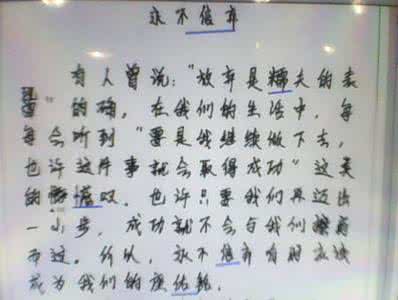 永不弃
有人曾说:“放弃是懦夫的表
” 的确，在我们的生活中，每
每会听到“要是我继续做下去，
也许这件事就会取得成功”这类
的叹。也许只要我们再迈出
一小步，成功就不会与我们
而过。所以，永不弃有时应该
成为我们的座佑铭。